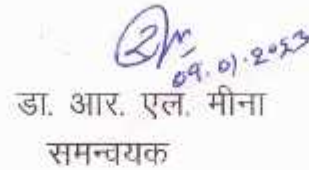 09.01.2023
डा. आर. एल. मीना
समन्वयक